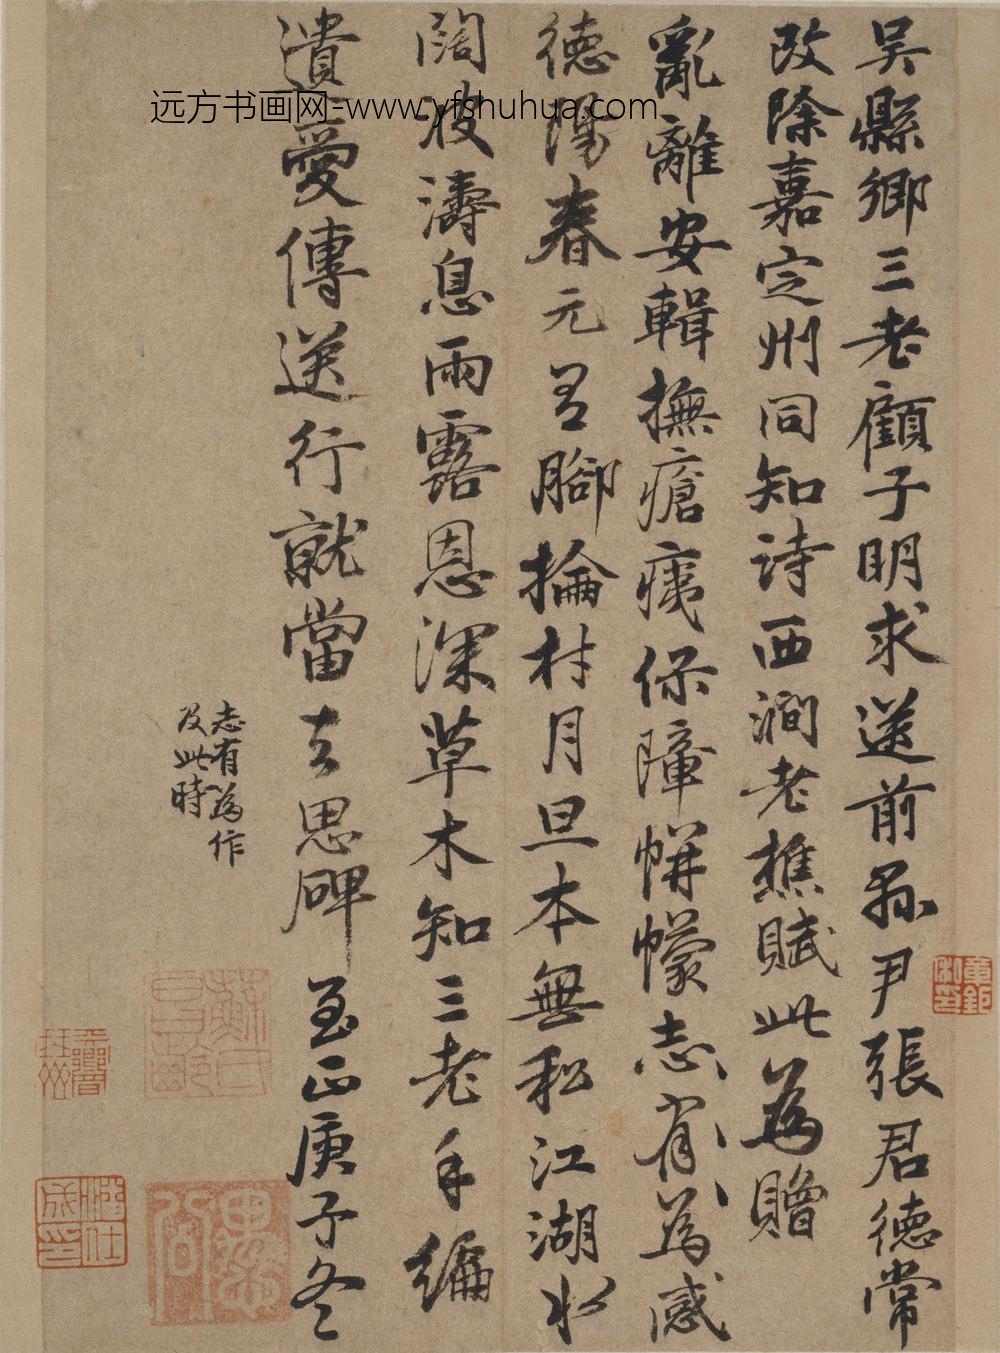 吳縣鄉三老顧子明求送前縣尹張君德常
改除嘉定州同知詩西澗老樵賦此為贈
亂離安輯撫瘡痍保障帡幪志有為感
德陽春元有腳掄材月旦本無私江湖水
闊波濤息雨露恩深草木知三老手編
遺愛傳送行就當去思碑至正庚子冬
志有為作
及此時
远方书画网-www.yfshuhua.com